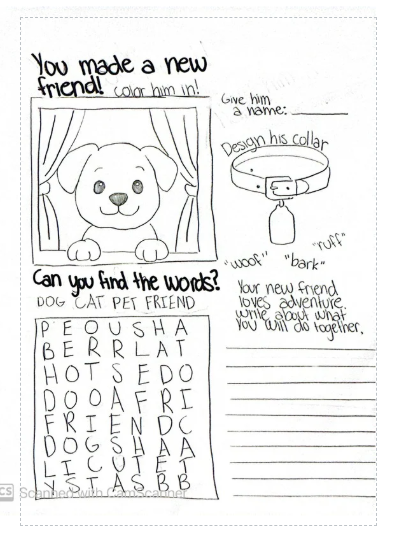 You made a new
friend! color him in!
Give him
a name:
Design his collar
"ruff"
"woof" "bark"
Can you find the words?
DOG CAT PET FRIEND
P E O U S H A
B E R R L A T
H O T S E D O
D O O A F R I
F R I E N D C
D O G S H A A
L I C U T E T
Y S T A S B B
Your new friend
loves adventure.
write about what
you will do together.
CS Scanned with CamScanner